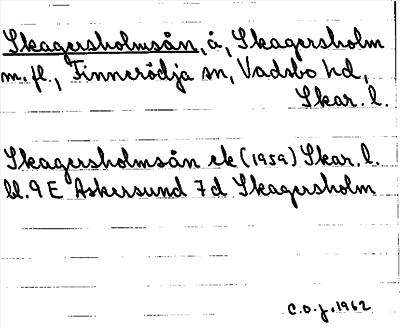 Skagersholmsån, å, Skagersholm
m. fl., Finnerödja sn, Vadsbo hd,
Skar. l.
Skagersholmsån ek (1959) Skar. l.
bl. 9 E Askersund 7d Skagersholm
C.O.J. 1962